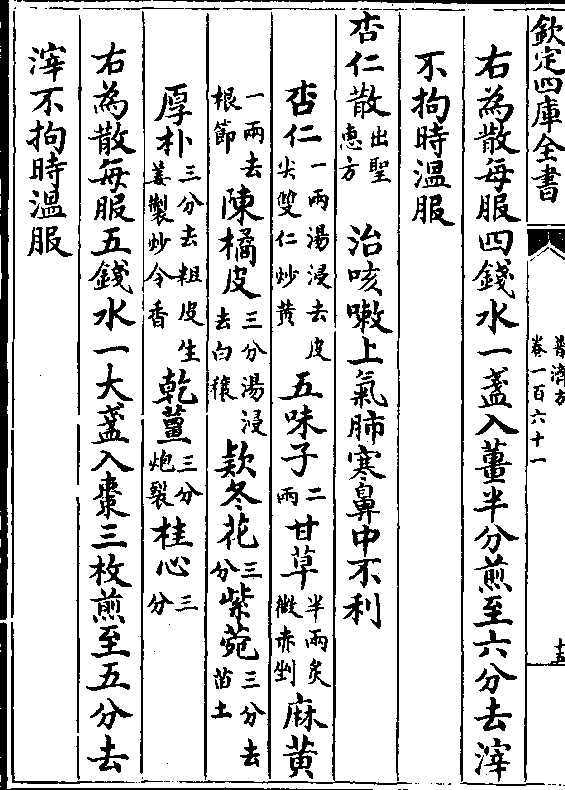 欽定四庫全書
普濟方
卷一百六十一
十五
右為散每服四錢水一盞入薑半分煎至六分去滓
不拘時溫服
杏仁散出聖惠方 治咳嗽上氣肺寒鼻中不利
杏仁一兩湯浸去皮尖雙仁炒黄 五味子二兩 甘草半兩炙微赤剉 麻黄
一兩去根節 陳橘皮三分湯浸去白穰 欵冬花三分 紫菀三分去苗土
厚朴三分去粗皮生姜製炒令香 乾薑三分炮裂 桂心三分
右為散每服五錢水一大盞入棗三枚煎至五分去
滓不拘時溫服